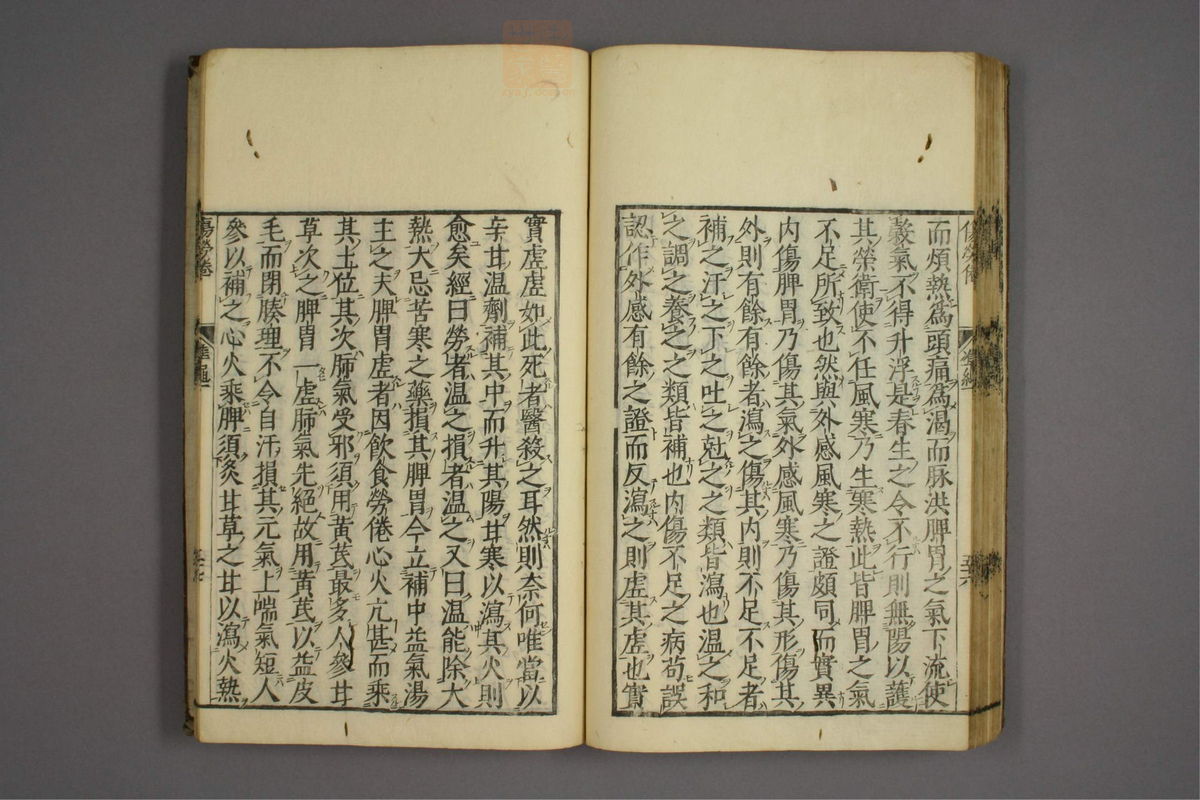 而煩熱爲頭痛爲渴而脉洪脾胃之氣下流使
穀氣不得升浮是春生之令不行則無陽以護
其榮衛使不任風寒乃生寒熱此皆脾胃之氣
不足所致也然與外感風寒之證頗同而實異
内傷脾胃乃傷其氣外感風寒乃傷其形傷其
外則有餘有餘者瀉之傷其内則不足不足者
補之汗之下之吐之尅之之類皆瀉也温之和
之調之養之之類皆補也内傷不足之病苟誤
認作外感有餘之證而反瀉之則虚其虚也實
實虚虚如此死者醫殺之耳然則奈何唯當以
辛甘温劑補其中而升其陽甘寒以瀉其火則
愈矣經曰勞者温之損者温之又曰温能除大
熱大忌苦寒之藥損其脾胃今立補中益氣湯
主之夫脾胃虚者因飲食勞倦心火亢甚而乘
其土位其次肺氣受邪須用黄芪最多人參甘
草次之脾胃一虚肺氣先絶故用黄芪以益皮
毛而閉腠理不令自汗損其元氣上喘氣短人
參以補之心火乘脾須炙甘草之甘以瀉火熱